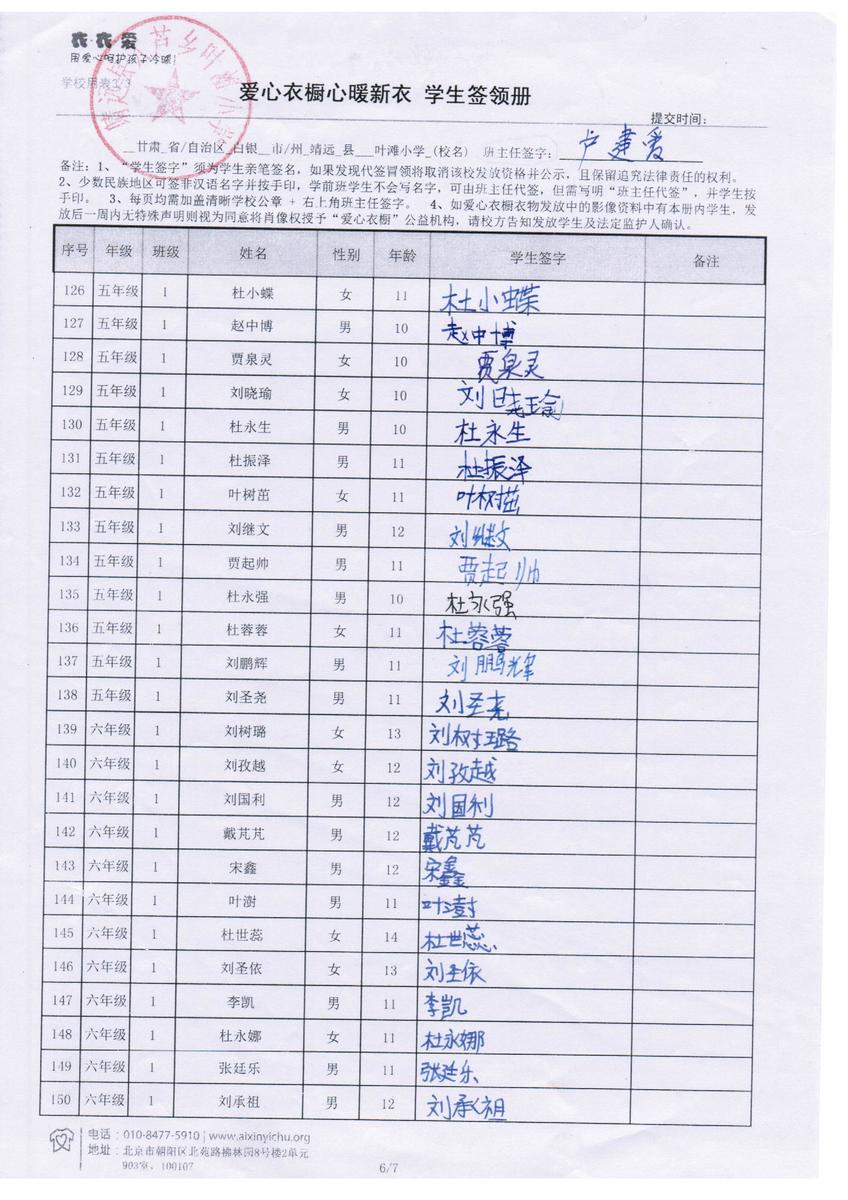 衣·衣·爱
用爱心呵护孩子冷暖!
学校用表3/3
爱心衣橱心暖新衣 学生签领册
提交时间:
__甘肃_省/自治区_白银__市/州_靖远_县___叶滩小学_(校名) 班主任签字: 卢建爱
备注:1、“学生签字”须为学生亲笔签名,如果发现代签冒领将取消该校发放资格并公示,且保留追究法律责任的权利。
2、少数民族地区可签非汉语名字并按手印,学前班学生不会写名字,可由班主任代签,但需写明“班主任代签”,并学生按
手印。 3、每页均需加盖清晰学校公章 + 右上角班主任签字。 4、如爱心衣橱衣物发放中的影像资料中有本册内学生,发
放后一周内无特殊声明则视为同意将肖像权授予“爱心衣橱”公益机构,请校方告知发放学生及法定监护人确认。
序号 年级 班级 姓名 性别 年龄 学生签字 备注
126 五年级 1 杜小蝶 女 11 杜小蝶
127 五年级 1 赵中博 男 10 赵中博
128 五年级 1 贾泉灵 女 10 贾泉灵
129 五年级 1 刘晓瑜 女 10 刘晓瑜
130 五年级 1 杜永生 男 10 杜永生
131 五年级 1 杜振泽 男 11 杜振泽
132 五年级 1 叶树茁 女 11 叶树茁
133 五年级 1 刘继文 男 12 刘继文
134 五年级 1 贾起帅 男 11 贾起帅
135 五年级 1 杜永强 男 10 杜永强
136 五年级 1 杜蓉蓉 女 11 杜蓉蓉
137 五年级 1 刘鹏辉 男 11 刘鹏辉
138 五年级 1 刘圣尧 男 11 刘圣尧
139 六年级 1 刘树璐 女 13 刘树璐
140 六年级 1 刘孜越 女 12 刘孜越
141 六年级 1 刘国利 男 12 刘国利
142 六年级 1 戴芃芃 男 12 戴芃芃
143 六年级 1 宋鑫 男 12 宋鑫
144 六年级 1 叶澍 男 11 叶澍
145 六年级 1 杜世蕊 女 14 杜世蕊
146 六年级 1 刘圣依 女 13 刘圣依
147 六年级 1 李凯 男 11 李凯
148 六年级 1 杜永娜 女 11 杜永娜
149 六年级 1 张廷乐 男 11 张廷乐
150 六年级 1 刘承祖 男 12 刘承祖
电话:010-8477-5910 | www.aixinyichu.org
地址:北京市朝阳区北苑路傲林园8号楼2单元
903室,100107
6/7